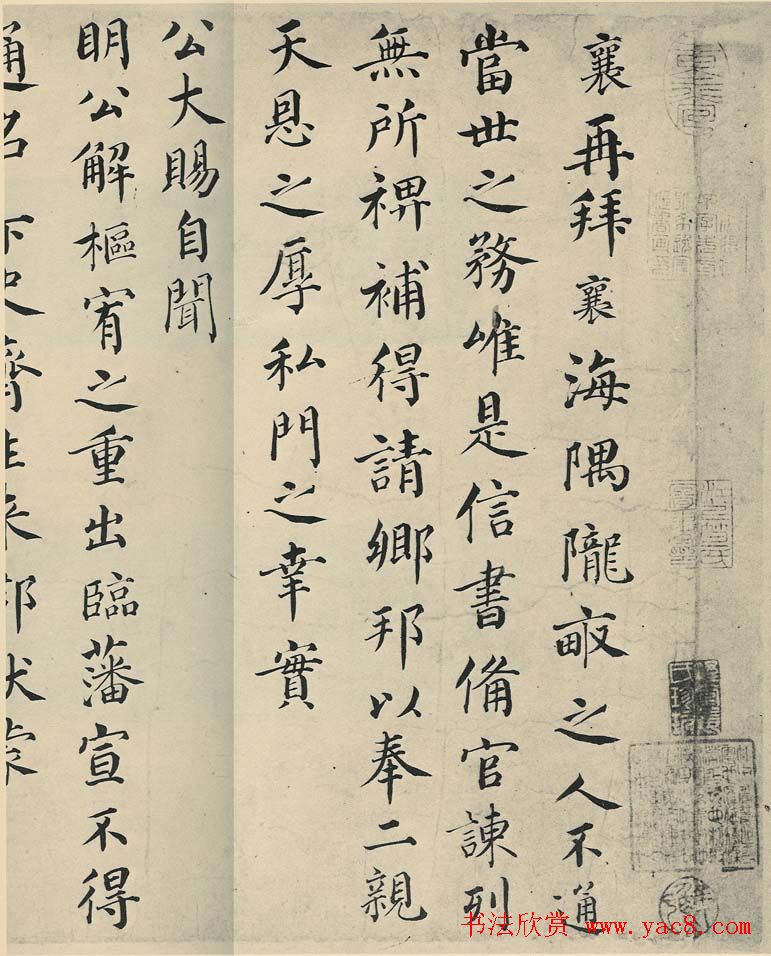 襄再拜襄海隅隴畝之人不通
當世之務唯是信書備官諫列
無所裨補得請鄉邦以奉二親
天恩之厚私門之幸實
公大賜自聞
明公解樞宥之重出臨藩宣不得
通名下史齊
书法欣赏 www.yac8.com